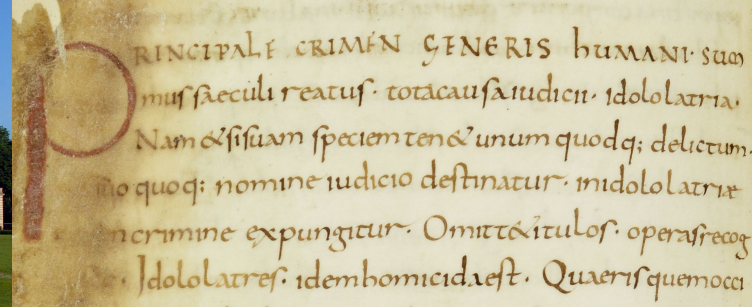 PRINCIPALE CRIMEN GENERIS hUMANI· SUM
mus saeculi reatus· tota causa iudicii· idololatria·
Nam & si suam speciem ten& unum quodq; delictum·
suo quoq: nomine iudicio destinatur· in idololatriæ
crimine expungitur· Omitt& itulos· operas recog
Idololatres· idem homicida est· Quaeris quem occi